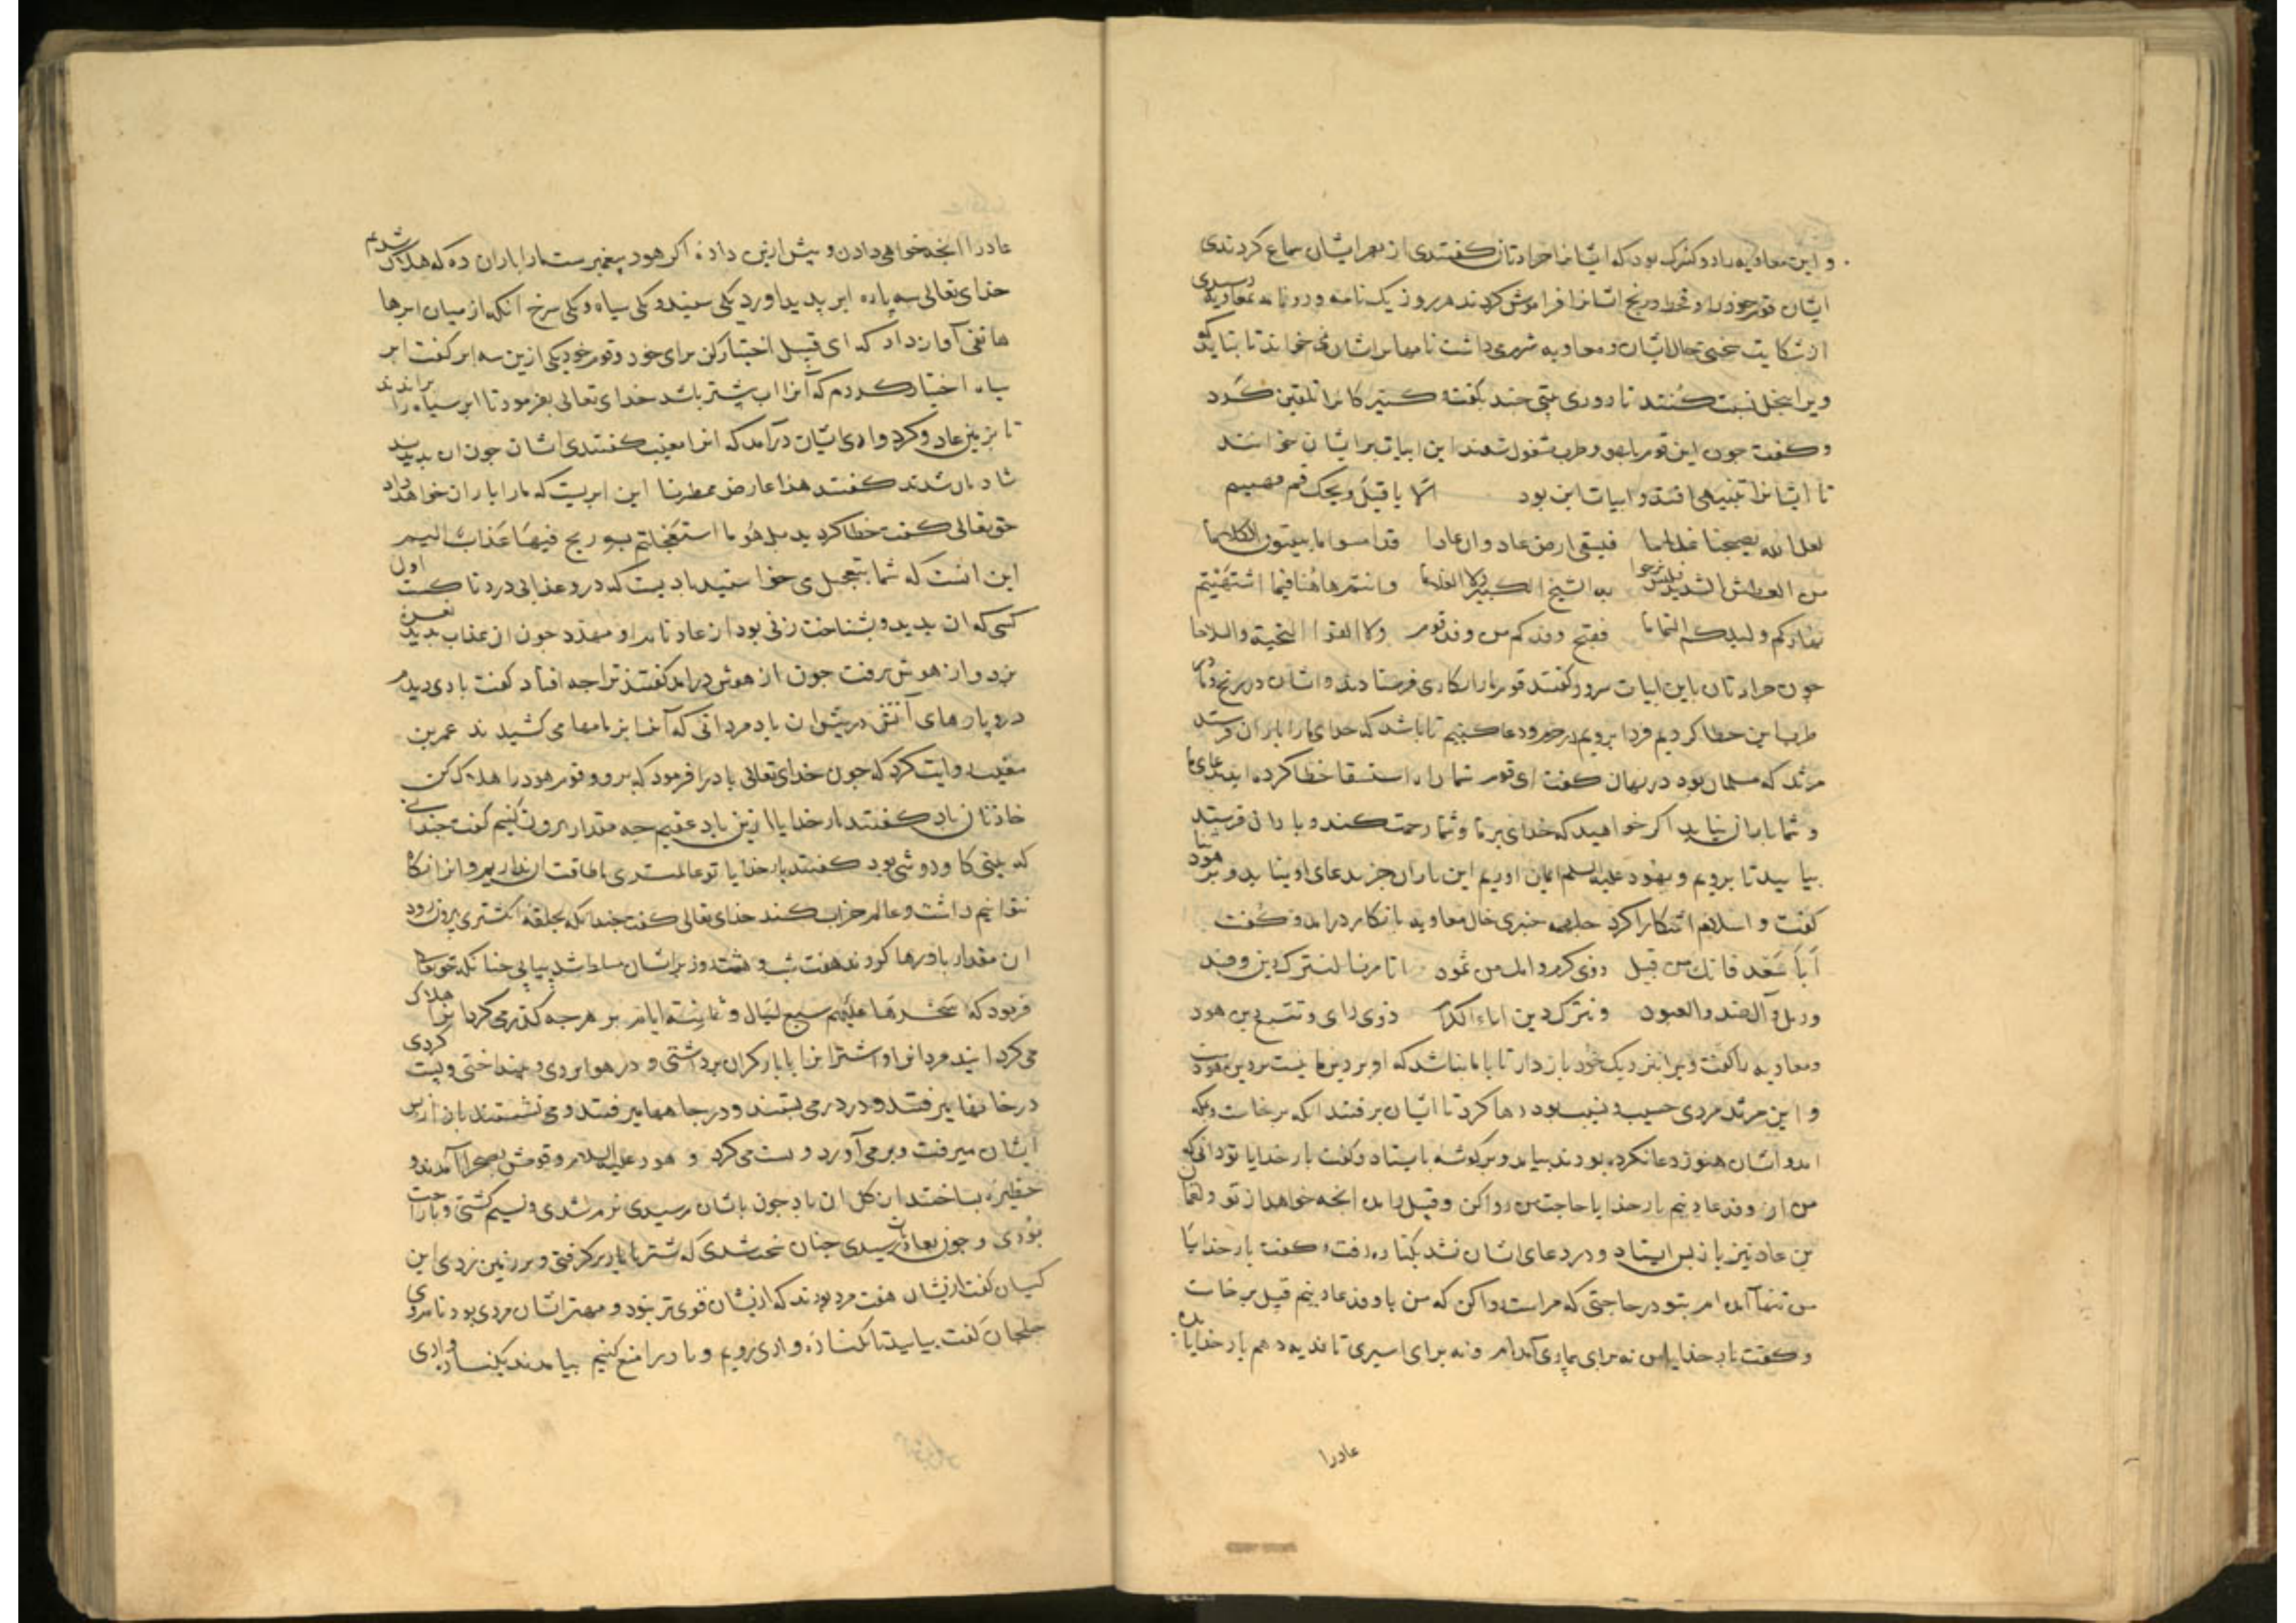 و این معاویه را دو کنیزک بود که ایشانرا جرادتان کفتندی از بهر ایشان سماع کردندی
ایشان قوم خود را و قحط و رنج ایشانرا فراموش کردند هر روز یک نامه و دو نامه بمعاویه رسیدی
از شکایت سختی حال ایشان و معاویه شرم می داشت نامها بر ایشان می خواند تا نباید کو
ویرا ببخل نسبت کنند تا روزی بیتی چند بکفت و کنیزکانرا تلقین کرد
و کفت چون این قوم بلهو و طرب مشغول شوند این ابیات بر ایشان خوانند
تا ایشانرا تنبیهی افتد و ابیات این بود الا یا قیل ویحک قم فهینم
لعل الله یصبحنا غماما فیسقی ارض عاد و ان عادا قد امسوا ما یبینون الکلاما
من العطش الشدید فلیس نرجوا به الشیخ الکبیر ولا الغلاما وانتم هاهنا فیما اشتهیتم
نهارکم ولیلکم التماما فقبح وفدکم من وفد قوم ولا لقوا التحیة والسلاما
چون جرادتان باین ابیات سرود کفتند قوم ما را بکاری فرستادند و ایشان در رنج و ما در
طرب این خطا کردیم فردا برویم در حرم و دعا کنیم تا باشد که خدای ما را باران فرستد
مرثد که مسلمان بود در نهان کفت ای قوم شما راه استسقا خطا کرده اید بدعای ما
و شما باران نیاید اکر خواهید که خدای بر ما و شما رحمت کند و باران فرستد
بیایید تا برویم و بهود علیه السلم ایمان اوریم این باران جز بدعای او نیاید و بر هود ثنا
کفت و اسلام اشکارا کرد جلهمه خیبری خال معاویه بانکار درامد و کفت
أبا سعد فانک من قبیل ذوی کرم و امک من ثمود اتامرنا لنترک دین وفد
ورمل و آل ضد والعبود ونترک دین اباء کرام ذوی رای ونتبع دین هود
ومعاویه را کفت ویرا بنزدیک خود باز دار تا با ما نباشد که او بر دین ما نیست بر دین هودست
و این مرثد مردی حسیب و نسیب بود رها کرد تا ایشان برفتند انکه برخاست و بمکه
امد و ایشان هنوز دعا نکرده بودند بیامد و بر کوشه بایستاد و کفت بار خدایا تو دانی که
من از وفد عاد نیم بار خدایا حاجت من روا کن و قیل را بده انچه خواهد از تو و لقمان
بن عاد نیز باز پس ایستاد و در دعای ایشان نشد بکناره رفت و کفت بار خدایا
من تنها آمده ام بتو در حاجتی که مراست روا کن که من با وفد عاد نیم قیل برخاست
و کفت بار خدایا من نه برای بیماری آمده ام و نه برای اسیری تا فدیه دهم بار خدایا بده
عادرا
عادرا انچه خواهی دادن و پیش ازین داده اکر هود پیغمبرست ما را باران ده که هلاک شدیم
خدای تعالی سه پاره ابر پدید اورد یکی سفید و یکی سیاه و یکی سرخ انکه از میان ابرها
هاتفی آواز داد که ای قیل اختیار کن برای خود و قوم خود یکی ازین سه ابر کفت ابر
سیاه اختیار کردم که آنرا اب بیشتر باشد خدای تعالی بفرمود تا ابر سیاه را براندند
تا بزمین عاد و کرد وادی ایشان درآمد که انرا مغیث کفتندی ایشان چون ان بدیدند
شادمان شدند کفتند هذا عارض ممطرنا این ابریست که ما را باران خواهد داد
حق تعالی کفت خطا کردید بل هو ما استعجلتم به ریح فیها عذاب الیم
این انست که شما بتعجیل می خواستید بادیست که درو عذابی دردناکست اول
کسی که ان بدید و بشناخت زنی بود از عاد نام او مهدد چون ان عذاب بدید نعره
بزد و از هوش برفت چون از هوش درامد کفتند ترا چه افتاد کفت بادی دیدم
درو پارهای آتش در پیش ان باد مردانی که آنرا بزمامها می کشیدند عمر بن
شعیب روایت کرد که چون خدای تعالی باد را فرمود که برو و قوم هود را هلاک کن
خازنان باد کفتند بار خدایا ازین باد عقیم چه مقدار برون کنیم کفت چندانی
که بینی کاو دوشی بود کفتند بار خدایا تو عالمتری ما طاقت ان نداریم و انرا نکاه
نتوانیم داشت و عالم خراب کند خدای تعالی کفت چندانکه بحلقه انکشتری برون رود
ان مقدار باد رها کردند هفت شب و هشت روز بر ایشان مسلط شد پیاپی چنانکه حق تعالی
فرمود که سخرها علیهم سبع لیال و ثمانیة ایام بر هر چه کذر می کرد انرا هلاک
می کردانید مردانرا و اشترانرا با بار کران برداشتی و در هوا بردی و بینداختی و پست کردی
در خانها میرفتند و در درمی بستند و در چاهها میرفتند و می نشستند باد از پس
ایشان میرفت و برمی آورد و پست می کرد و هود علیه السلام و قومش بصحرا آمدند و
حظیره بساختند از کل ان باد چون بایشان رسیدی نرم شدی و نسیم کشتی و با راحت
بودی و چون بعادیان رسیدی چنان سخت شدی که شتر با بار برکرفتی و بر زمین زدی ابن
کیسان کفت از ایشان هفت مرد بودند که ازیشان قوی تر نبود و مهتر ایشان مردی بود نام وی
خلجان کفت بیایید تا بکناره وادی رویم و باد را منع کنیم بیامدند بکنار وادی